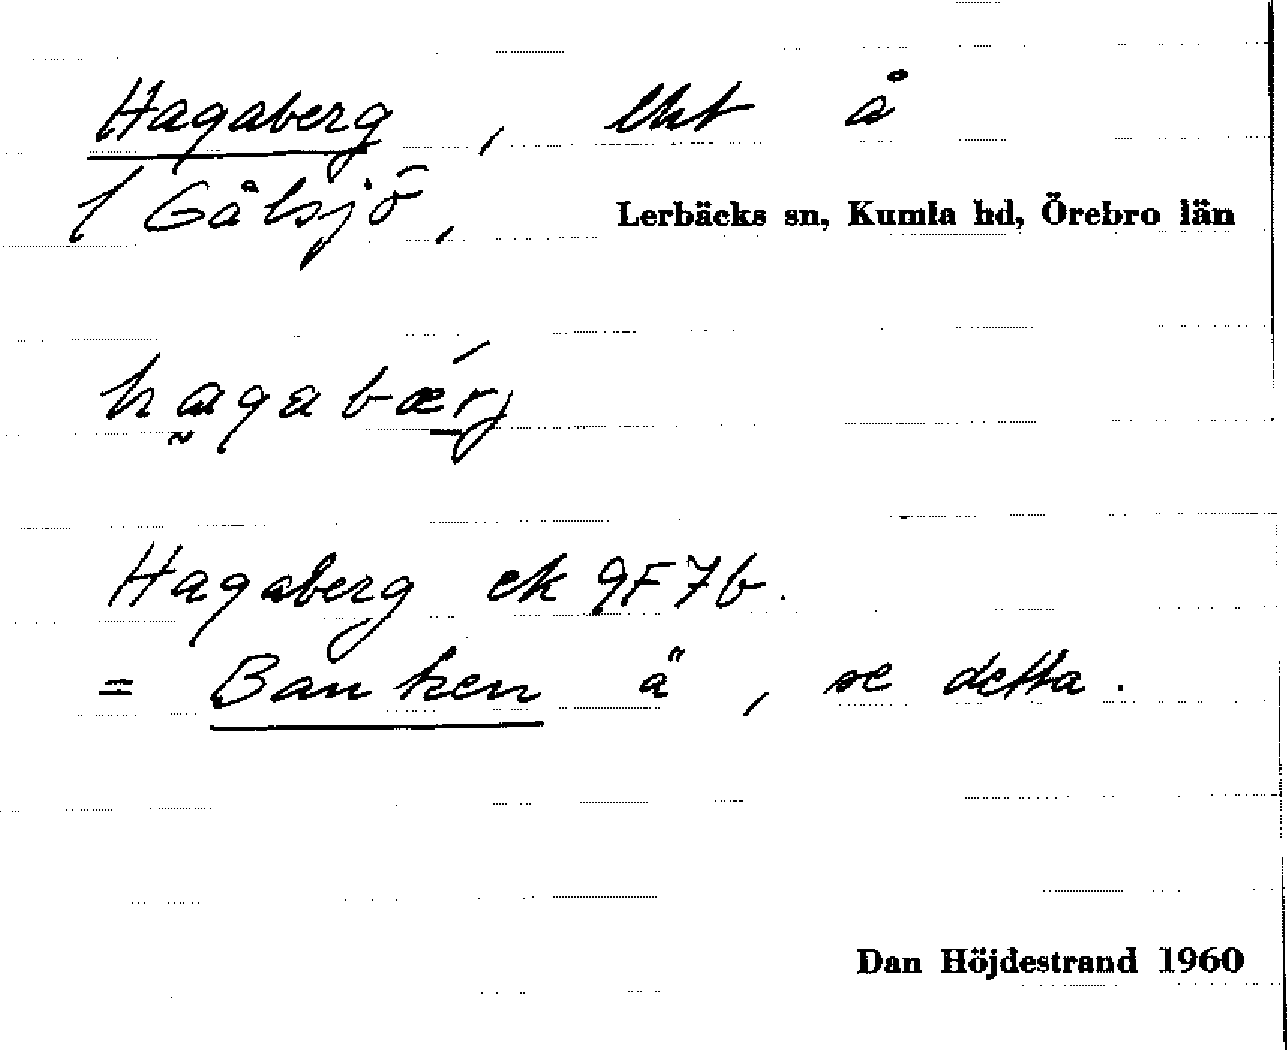 Hagaberg, lht å
1 Gålsjö, Lerbäcks sn, Kumla hd, Örebro län
hagabærj
Hagaberg ek 9F7b.
= Banken ä, se detta.
Dan Höjdestrand 1960